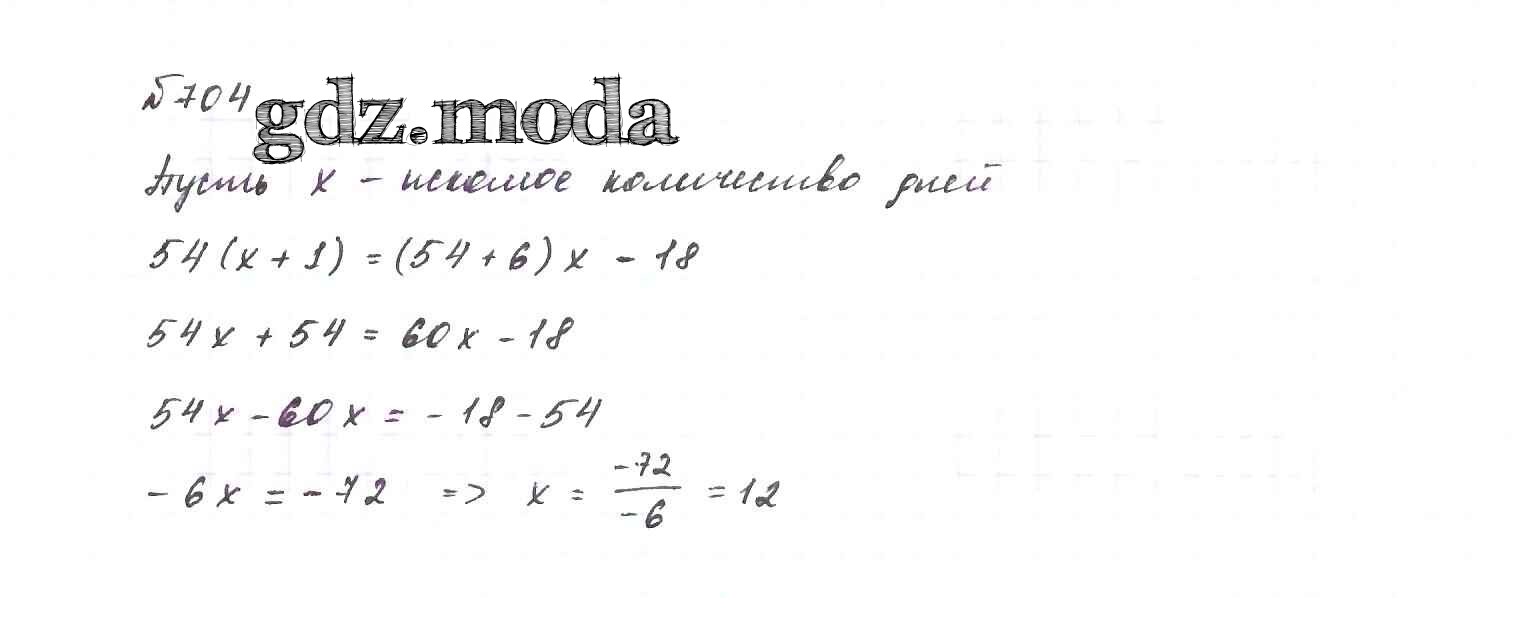 №704 gdz.moda
Пусть x - искомое количество дней
54(x + 1) = (54 + 6) x - 18
54x + 54 = 60x - 18
54x - 60x = - 18 - 54
- 6x = - 72 => x = -72/-6 = 12